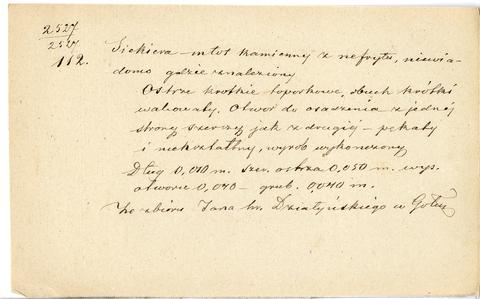 2527
2527
112.
Siekiera-młot kamienny z nefrytu, niewia-
domo gdzie znaleziony
Ostrze krótkie toporkowe, obuch krótki
walcowaty. Otwór do osadzenia z jednej
strony szerszy jak z drugiéj – pękaty
i niekształtny, wyrób wykończony
Dług. 0,010 m. szer. ostrza 0,050 m. wys.
otworu 0,040 – grub. 0,040 m.
Ze zbioru Jana hr. Działyńskiego w